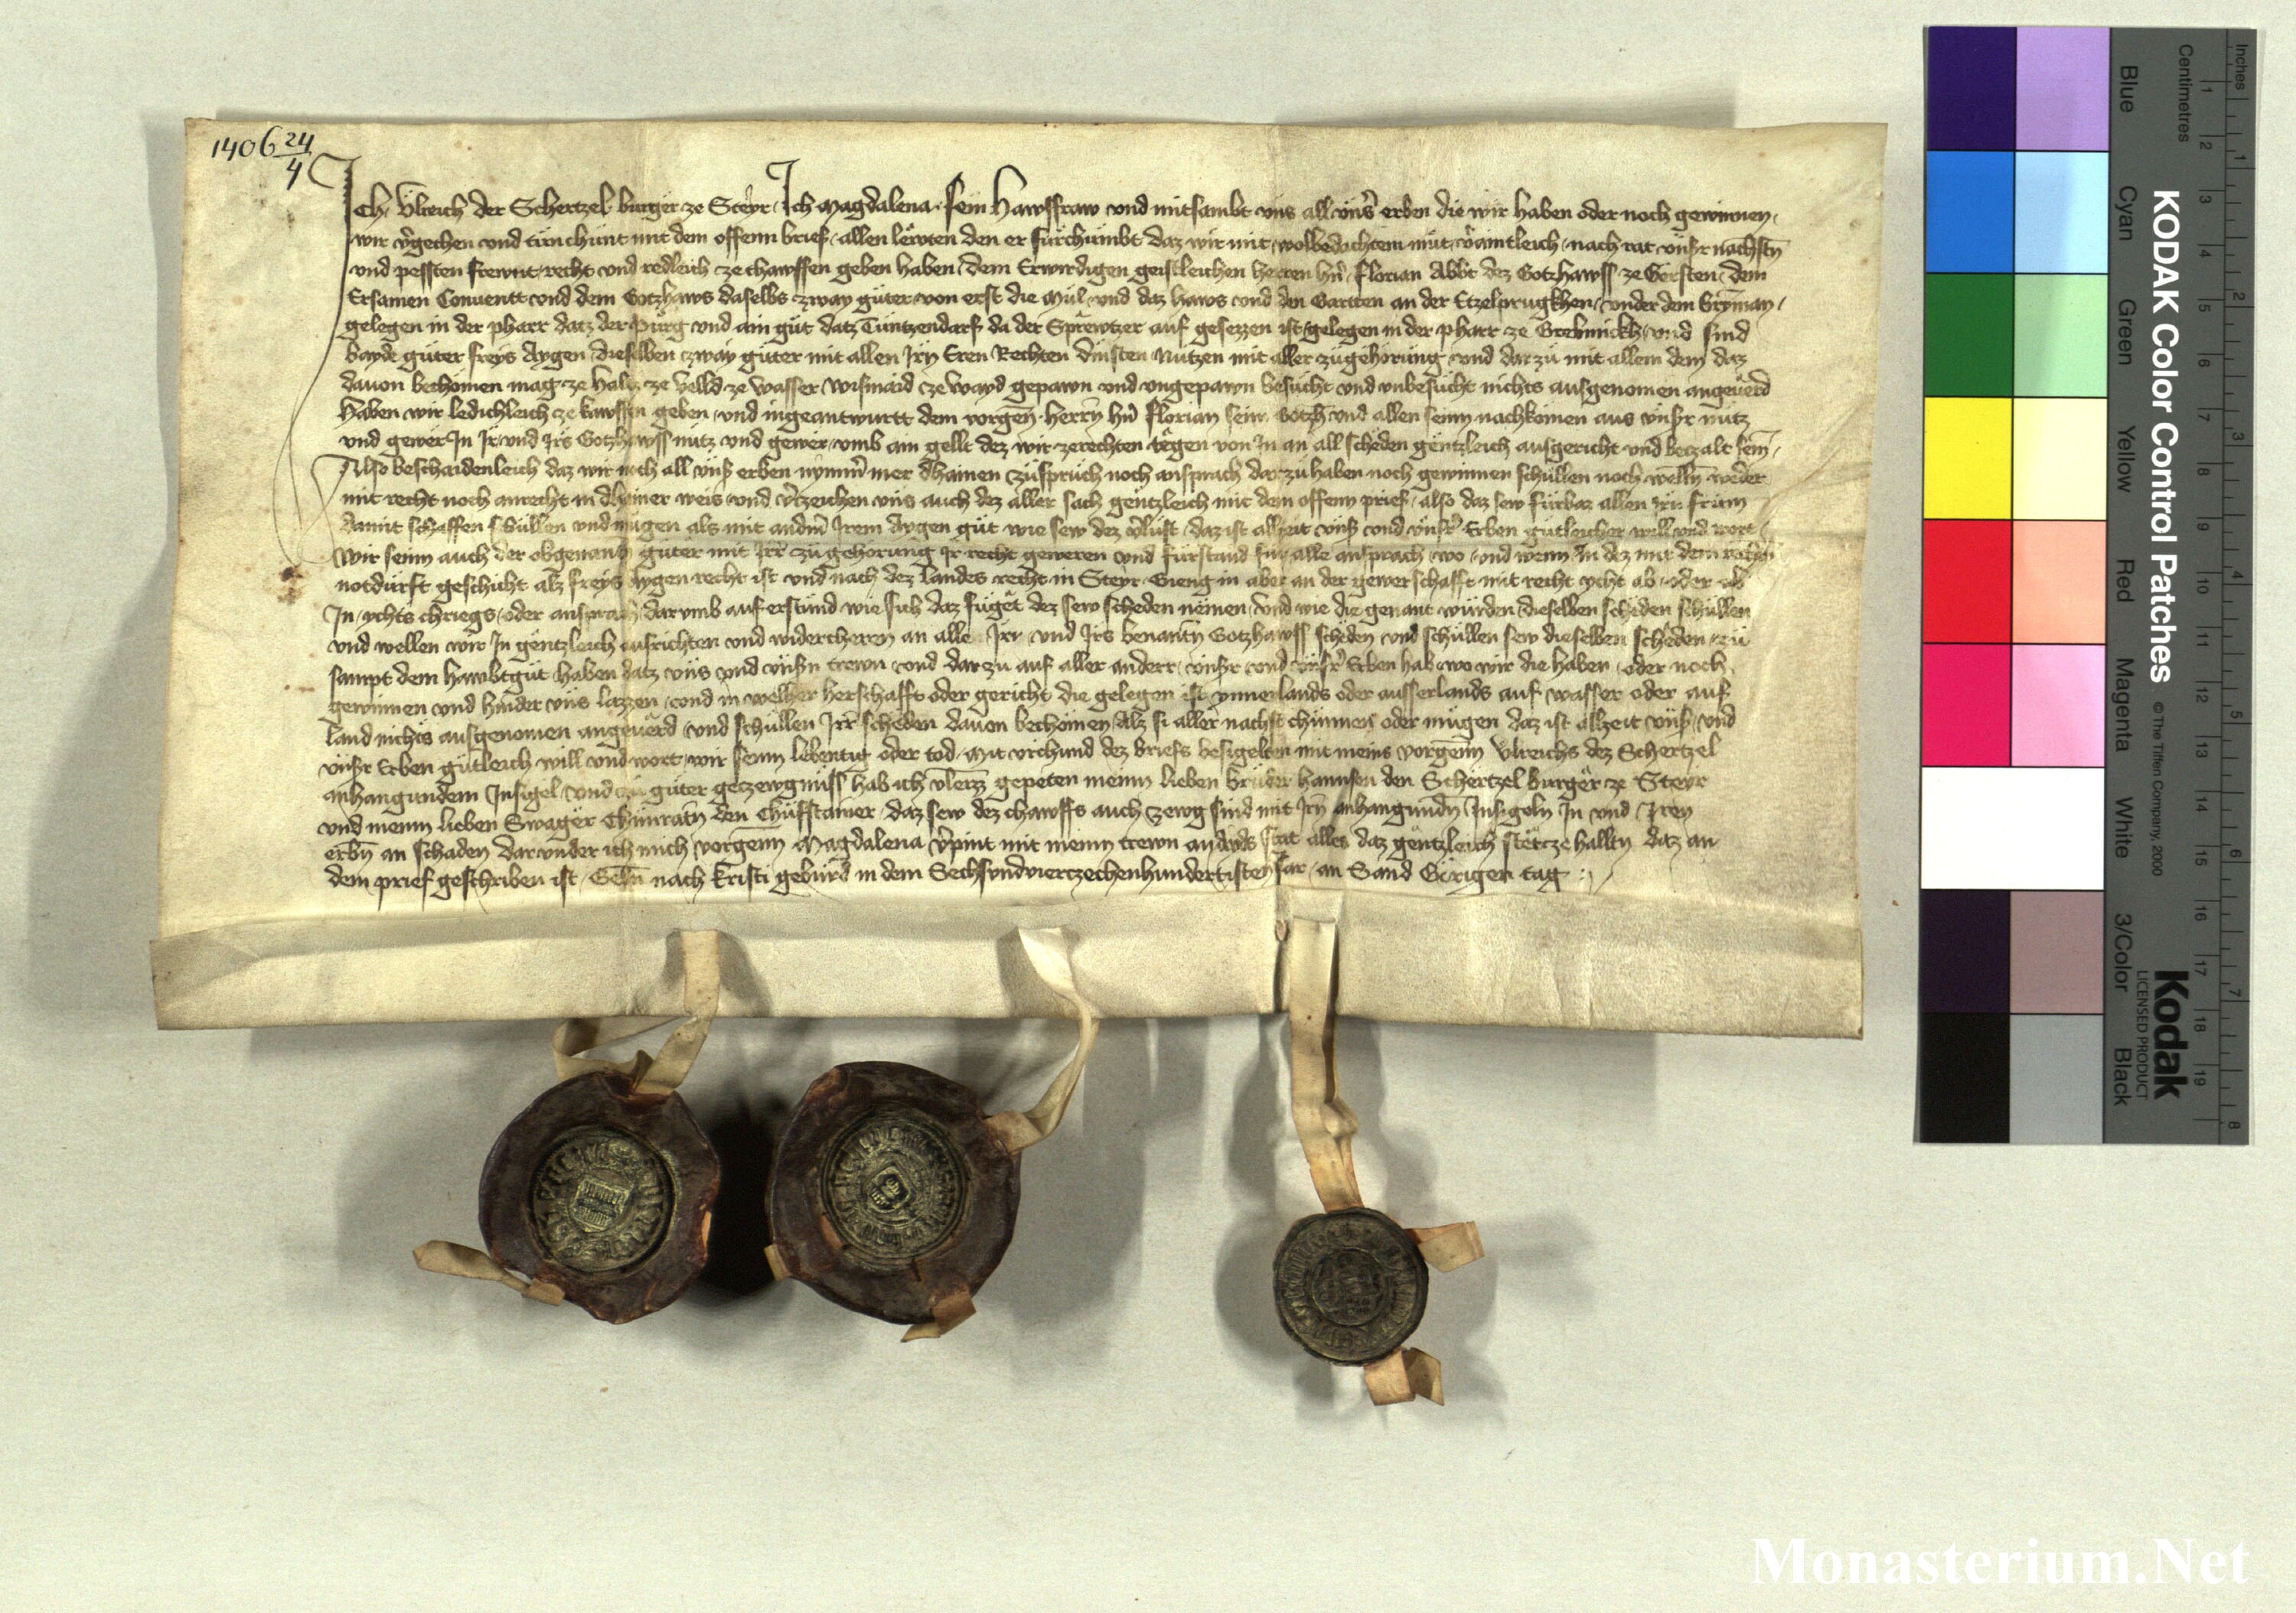 1406 24/4
Ich Ulreich der Schertzel burger ze Steyr Ich Magdalena sein Hawsfraw und mitsambt uns all uns' erben die wir haben oder noch gewinnen
wir v'gechen und tun chunt mit dem offenn brief allen lewten den er furchumbt daz wir mit wolbedachtem mut nach rat unsr nachstn
und pessten frewnt recht und redleich ze chawffen geben haben dem Erwirdigen geistleichen herren hn' Florian Abbt dez Gotzhawss ze Gersten dem
Ersamen Conuentt und dem Gotzhaws daselbs zway guter von erst die Mül und daz haws und den Gartten an der Etzelprugkhen under dem
gelegen in der pharr datz der Purg und ain gut datz Tuntzendarf da der Sprewtzer auf gesezzen ist gelegen in der pharr ze und sind
bayde guter freys Aygen dieselben zway guter mit allen Irn Eren Rechten dinsten Nutzen mit aller zugehorung und darzu mit allem dem daz
dauon bechomen mag ze holtz ze velld ze wasser wismaid ze wayd gepawn und ungepawn besucht und unbesucht nichts ausgenomen angeuerd
Haben wir ledichleich ze kawffen geben und ingeantwurtt dem vorgen herrn hn' Florian seim Gotzh und allen seinn nachkomen aus unsr nutz
und gewer In Ir und Irs Gotzhawss nutz und gewer umb ain gellt dez wir ze rechten tegen von In an all scheden gentzleich ausgericht und betzalt sein
Also beschaidenleich daz wir noch all uns erben nymm' mer dhainen zuspruch noch ansprach darzu haben noch gewinnen schullen noch welln weder
mit recht noch anrecht in dhainer weis und v'tzeichen uns auch dez aller sach gentzleich mit dem offenn prief also daz sew furbaz allen irn frum
damit schaffen schullen und mugen als mit andn' Irem Aygen gut wie sew dez v'lust daz ist allzeit uns und unsr' Erben gutleicher will und wort
Wir seinn auch der obgenantn guter mit Irr zugehorung Ir recht geweren und furstand fur alle ansprach wo und wenn In dez mit dem rechtn
notdurft geschicht alz freys Aygen recht ist und nach dez landes recht in Steyr Gieng in aber an der gewerschafft mit recht ycht ab oder ob
In ychts chriegs oder ansprach darumb auferstund wie sich daz fuget dez sew scheden nemen und wie die genant wurden dieselben scheden schullen
und wellen wir In gentzleich ausrichten und widercherren an alle Irr und Irs benantn Gotzhawss scheden und schullen sew dieselben scheden zu
sampt dem hawbtgut haben datz uns und unsn trewn und darzu auf aller anderr unsr und unsr' Erben hab wo wir die haben oder noch
gewinnen und hinder uns lazzen und in welher herschafft oder gericht die gelegen ist ynner lands oder ausser lands auf wasser oder auf
land nichts ausgenomen angeuerd und schullen Irr scheden dauon bechomen Alz si aller nachst chunnen oder mugen daz ist allzeit uns und
unsr Erben gutleich will und wort wir seinn lebentig oder tod Mit urchund dez briefs besigelten mit meins vorgenn Ulreichs dez Schertzel
anhangundem Insigel und zu guter getzewgnuss hab ich gepeten meinn lieben bruder Hannsen den Schertzel burger ze Steyr
und meinn lieben Swager Chunratn den Chufstainer daz sew dez chawffs auch zewg sind mit Irn anhangundn Insigeln In und Iren
erbn an schaden darunder ich mich vorgenn Magdalena v'pint mit meinn trewn an ayds stat alles daz gentzleich stet ze halltn daz an
dem prief geschriben ist Gebn nach Kristi geburd in dem Sechsundviertzechenhundertisten Jar an Sand Görigen tag
KODAK Color Control Patches
© The Tiffen Company, 2000
Kodak
LICENSED PRODUCT
Blue Cyan Green Yellow Red Magenta White 3/Color Black
Inches 1 2 3 4 5 6 7 8
Centimetres 1 2 3 4 5 6 7 8 9 10 11 12 13 14 15 16 17 18 19
Monasterium.Net